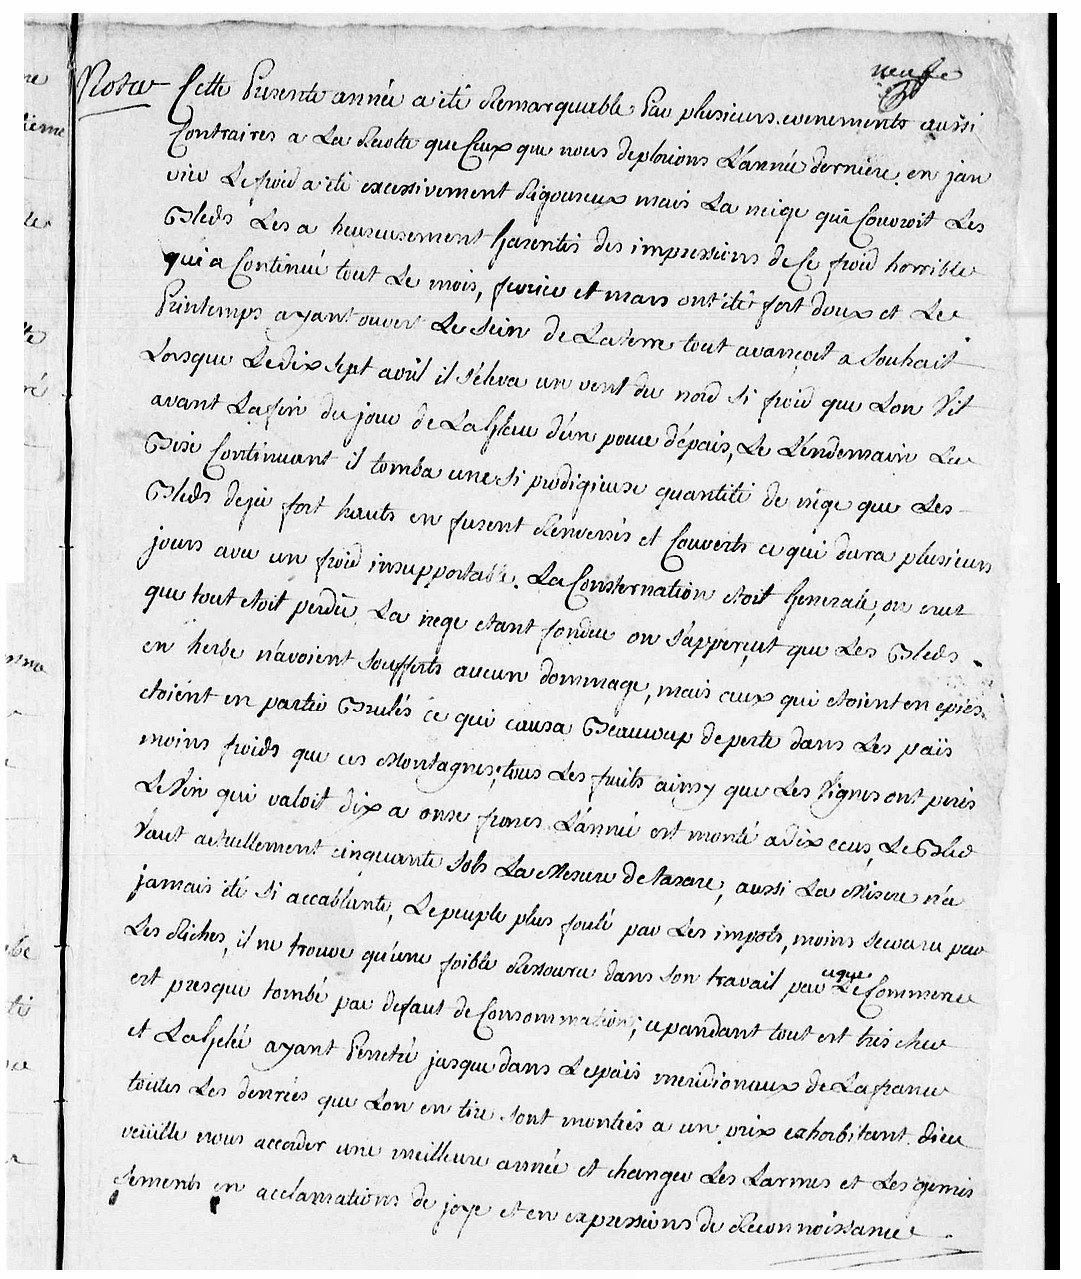 neufe
Nota Cette Presente année a été Remarquable Par plusieurs evenements aussi
Contraires a La Recolte que Ceux que nous deplorions L'année derniere. en jan
vier Le froid a été excessivement Rigoureux mais La neige qui Couvroit Les
Bleds Les a heureusement Garentis des impressions de Ce froid horrible
qui a Continué tout Le mois, fevrier et mars ont été fort doux et Le
Printemps ayant ouvert Le sein de La terre tout avançoit a Souhait
Lorsque Le dix sept avril il s'éleva un vent du nord si froid que Lon Vit
avant La fin du jour de La Glace d'un pouce d'épais, Le Lendemain La
Bise Continuant il tomba une si prodigieuse quantité de nége que Les
Bleds deja fort hauts en furent Renversés et Couverts ce qui dura plusieurs
jours avec un froid insupportable. La Consternation étoit Generale, on crut
que tout étoit perdu La nege etant fondue on s'apperçut que Les Bleds
en herbe n'avoient soufferts aucun dommage, mais ceux qui etoient en epics
etoient en partie Brulés ce qui causa Beaucoup de perte dans Les païs
moins froids que ces Montagnes; tous Les fruits ainsy que Les Vignes ont peris
Le Vin qui valoit dix a onse francs L'année est monté a dix ecus, Le Bled
Vaut actuellement cinquante sols La Mesure de tarare, aussi La Misere n'a
jamais été si accablante, Le peuple plus foulé par Les impots, moins secouru par
Les Riches, il ne trouve qu'une foible Ressource dans son travail par
ceque
Le Commerce
est presque tombé par defaut de Consommation; cependant tout est tres cher
et La Gelée ayant Penetré jusque dans Le païs meridionaux de La france
toutes Les denrées que Lon en tire sont montées a un prix exhorbitant. dieu
veüille nous accorder une meilleure année et changer Les Larmes et Les gemis
sements en acclamations de joye et en expressions de Reconnoissance.